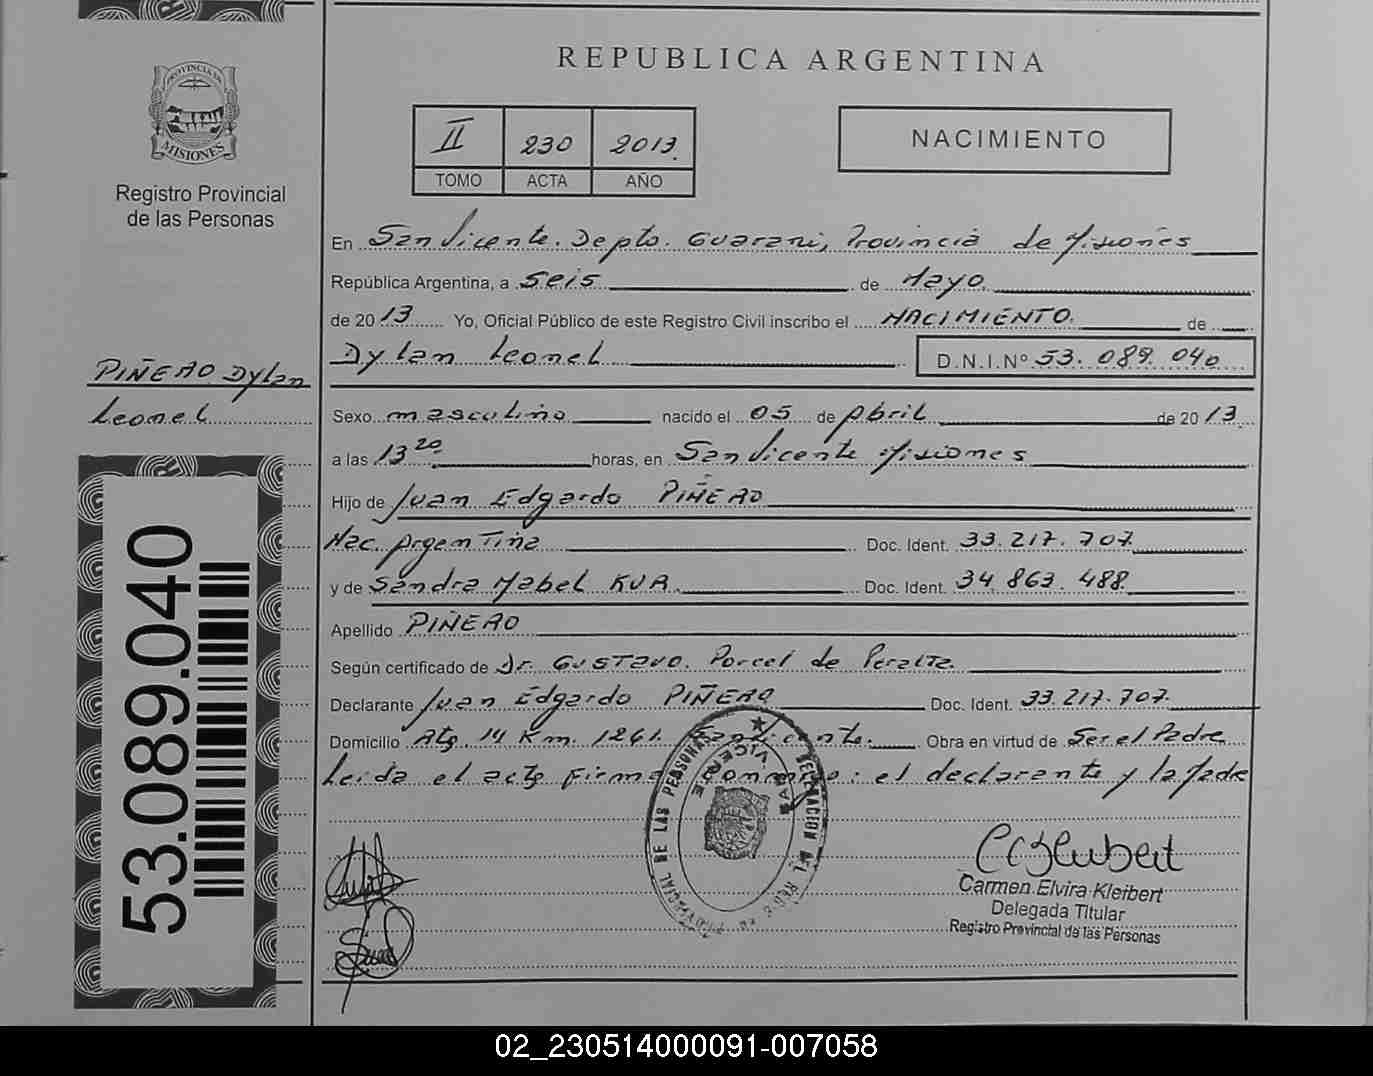 REPUBLICA ARGENTINA
PROVINCIA DE
MISIONES
Registro Provincial
de las Personas
II 230 2013.
TOMO ACTA AÑO
NACIMIENTO
En San Vicente. Depto. Guarani, Provincia de Misiones
República Argentina, a Seis de Mayo.
de 2013 Yo, Oficial Público de este Registro Civil inscribo el NACIMIENTO. de
Dylan Leonel D.N.I.Nº 53.089.040
PIÑERO Dylan
Leonel
Sexo masculino nacido el 05 de Abril de 2013.
a las 13 20 horas, en San Vicente Misiones
Hijo de Juan Edgardo PIÑERO
Nac. Argentina Doc. Ident. 33.217.707
y de Sandra Mabel KUA. Doc. Ident. 34.863.488.
Apellido PIÑERO
Según certificado de Dr. Gustavo. Porcel de Peralta.
Declarante Juan Edgardo PIÑERO Doc. Ident. 33.217.707.
Domicilio Rta. 14 Km. 1261. San Vicente. Obra en virtud de Ser el Padre
Leida el acta firma conmigo: el declarante y la Madre
53.089.040
DELEGACION DEL REGISTRO PROVINCIAL DE LAS PERSONAS
SAN VICENTE
Carmen Elvira Kleibert
Delegada Titular
Registro Provincial de las Personas
02_230514000091-007058